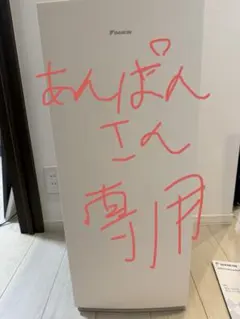 DAIKIN
あんぱん
さん
専用